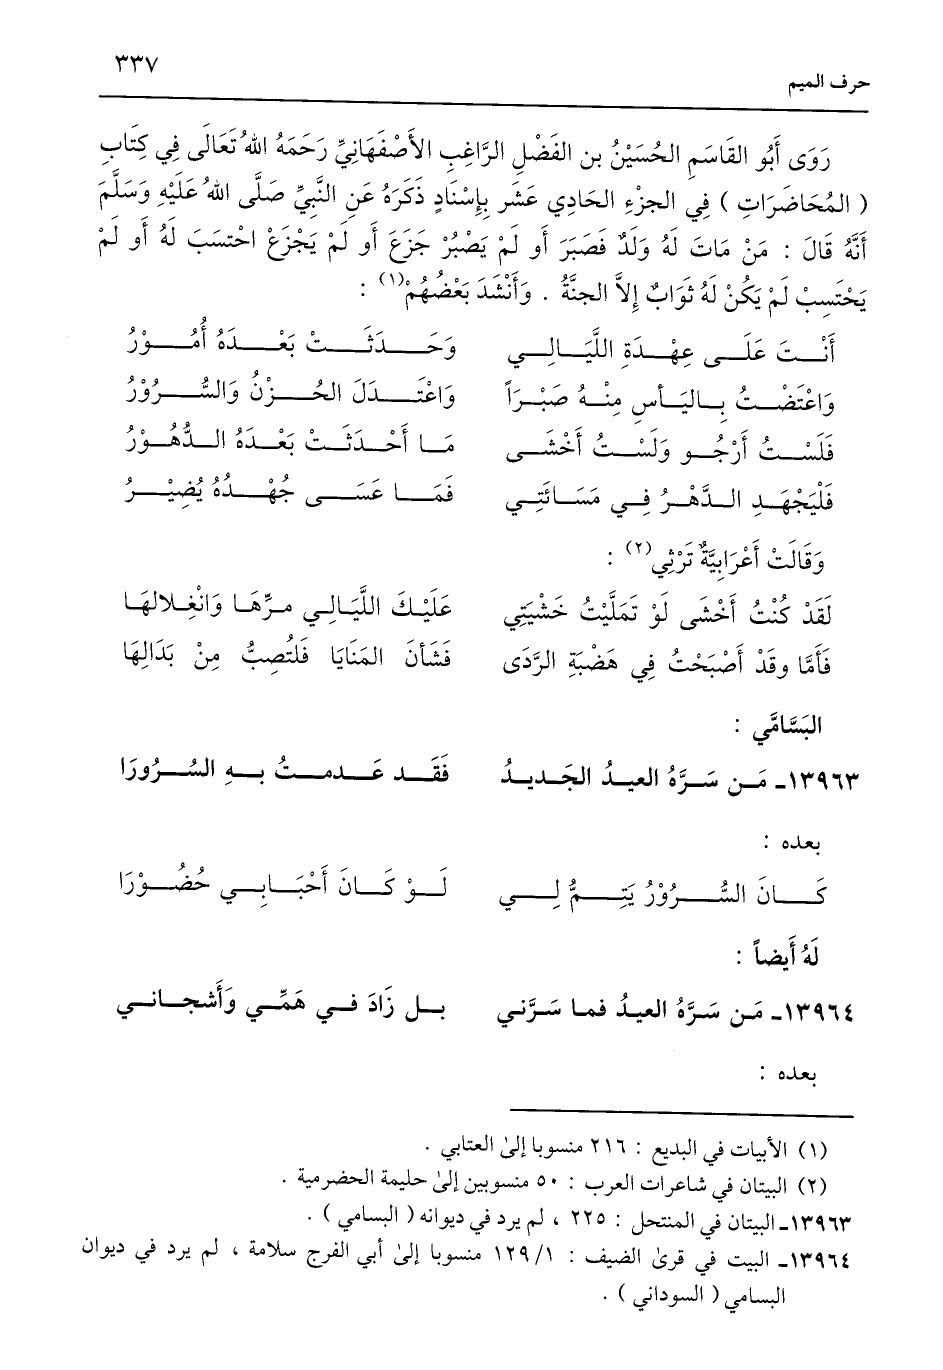 ٣٣٧
حرف الميم
رَوَى أَبُو القَاسَمِ الحُسَيْنُ بن الفَضْلِ الرَّاغِبِ الأَصْفَهَانِيِّ رَحَمَهُ اللهُ تَعَالَى فِي كِتَابِ
( المُحَاضَرَاتِ ) فِي الجزْءِ الحَادِي عَشَر بِإِسْنَادٍ ذَكَرَهُ عَنِ النَّبِيِّ صَلَّى اللهُ عَلَيْهِ وَسَلَّمَ
أَنَّهُ قَالَ : مَنْ مَاتَ لَهُ وَلَدٌ فَصَبَرَ أو لَمْ يَصْبُرْ جَزَعَ أو لَمْ يَجْزَعْ احْتسَبَ لَهُ أو لَمْ
يَحْتَسِبْ لَمْ يَكُنْ لَهُ ثَوَابٌ إِلاَّ الجنَّةُ . وَأَنْشَدَ بَعْضُهُمْ(١) :
أَنْتَ عَلَى عِهْدَةِ اللَّيَالِي وَحَدَثَتْ بَعْدَهُ أُمُوْرُ
وَاعْتَضْتُ بِاليَأْسِ مِنْهُ صَبْرَاً وَاعْتَدَلَ الحُزْنُ وَالسُّرُوْرُ
فَلَسْتُ أَرْجُو وَلَسْتُ أَخْشَى مَا أَحْدَثَتْ بَعْدَهُ الدُّهُوْرُ
فَلْيَجْهَدِ الدَّهْرُ فِي مَسَائَتِي فَمَا عَسَى جُهْدُهُ يُضِيْرُ
وَقَالَتْ أَعْرَابِيَّةٌ تَرْثِي(٢) :
لَقَدْ كُنْتُ أَخْشَى لَوْ تَمَلَّيْتُ خَشْيَتِي عَلَيْكَ اللَّيَالِي مرِّهَا وَانْغِلالهَا
فَأَمَّا وقَدْ أَصْبَحْتُ فِي هَضْبَةِ الرَّدَى فَشَأنَ المَنَايَا فَلتُصِبُّ مِنْ بَدَالِهَا
البَسَّامَّي :
١٣٩٦٣ـ مَن سَرَّهُ العيدُ الجَديدُ فَقَد عَدمتُ بهِ السُّرُورَا
بعده :
كَانَ السُّرُوْرُ يَتِمُّ لِي لَوْ كَانَ أَحْبَابِي حُضُوْرَا
لَهُ أَيضاً :
١٣٩٦٤ـ مَن سَرَّهُ العيدُ فما سَرَّني بل زَادَ في هَمِّي وَأَشجاني
بعده :
(١) الأبيات في البديع : ٢١٦ منسوبا إلىٰ العتابي .
(٢) البيتان في شاعرات العرب : ٥٠ منسوبين إلىٰ حليمة الحضرمية .
١٣٩٦٣ـ البيتان في المنتحل : ٢٢٥ ، لم يرد في ديوانه ( البسامي ) .
١٣٩٦٤ـ البيت في قرىٰ الضيف : ١/ ١٢٩ منسوبا إلىٰ أبي الفرج سلامة ، لم يرد في ديوان
البسامي ( السوداني ) .